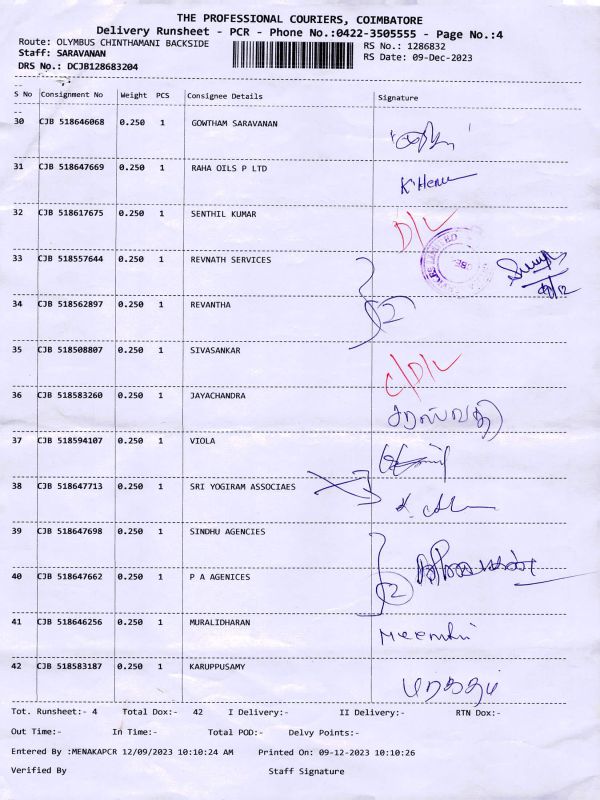 THE PROFESSIONAL COURIERS, COIMBATORE
Delivery Runsheet - PCR - Phone No.:0422-3505555 - Page No.:4
Route: OLYMBUS CHINTHAMANI BACKSIDE
RS No.: 1286832
Staff: SARAVANAN
RS Date: 09-Dec-2023
DRS No.: DCJB128683204
S No Consignment No Weight PCS Consignee Details Signature
30 CJB 518646068 0.250 1 GOWTHAM SARAVANAN
31 CJB 518647669 0.250 1 RAHA OILS P LTD
32 CJB 518617675 0.250 1 SENTHIL KUMAR D/L
33 CJB 518557644 0.250 1 REVNATH SERVICES
34 CJB 518562897 0.250 1 REVANTHA 2
35 CJB 518508807 0.250 1 SIVASANKAR C/D/L
36 CJB 518583260 0.250 1 JAYACHANDRA சரஸ்வதி
37 CJB 518594107 0.250 1 VIOLA
38 CJB 518647713 0.250 1 SRI YOGIRAM ASSOCIAES
39 CJB 518647698 0.250 1 SINDHU AGENCIES
40 CJB 518647662 0.250 1 P A AGENICES 2
41 CJB 518646256 0.250 1 MURALIDHARAN
42 CJB 518583187 0.250 1 KARUPPUSAMY
Tot. Runsheet:- 4 Total Dox:- 42 I Delivery:- II Delivery:- RTN Dox:-
Out Time:- In Time:- Total POD:- Delvy Points:-
Entered By :MENAKAPCR 12/09/2023 10:10:24 AM Printed On: 09-12-2023 10:10:26
Verified By Staff Signature